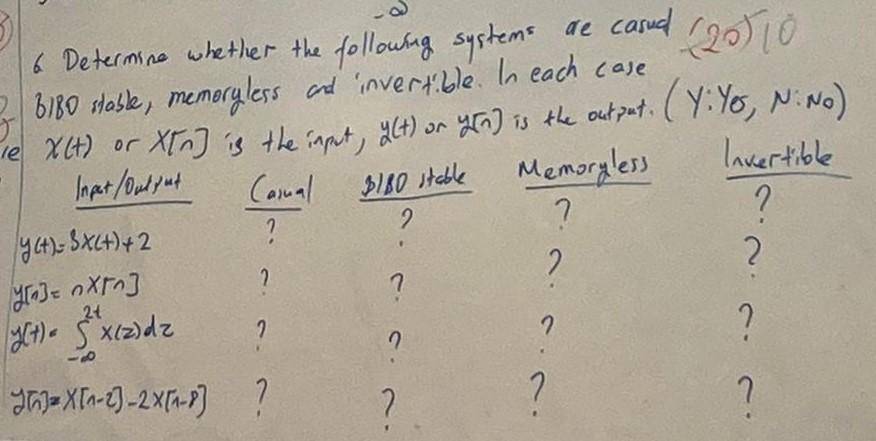 -∞
6 Determine whether the following systems are casual (20) 10
BIBO stable, memoryless and invertible. In each case
x(t) or x[n] is the input, y(t) or y[n] is the output. (Y:Yes, N:No)
Input/Output Casual BIBO stable Memoryless Invertible
y(t)=3x(t)+2 ? ? ? ?
y[n]= nx[n] ? ? ? ?
y(t)= ∫_{-∞}^{2t} x(z)dz ? ? ? ?
y[n]=x[n-2]-2x[n-8] ? ? ? ?